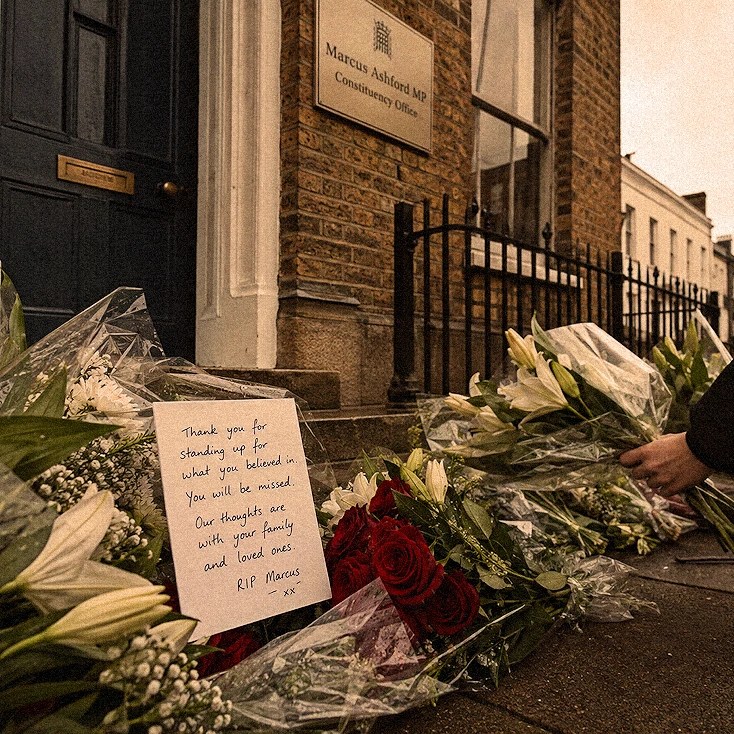 Marcus Ashford MP
Constituency Office
Thank you for
standing up for
what you believed in.
You will be missed.
Our thoughts are
with your family
and loved ones.
RIP Marcus
– xx –